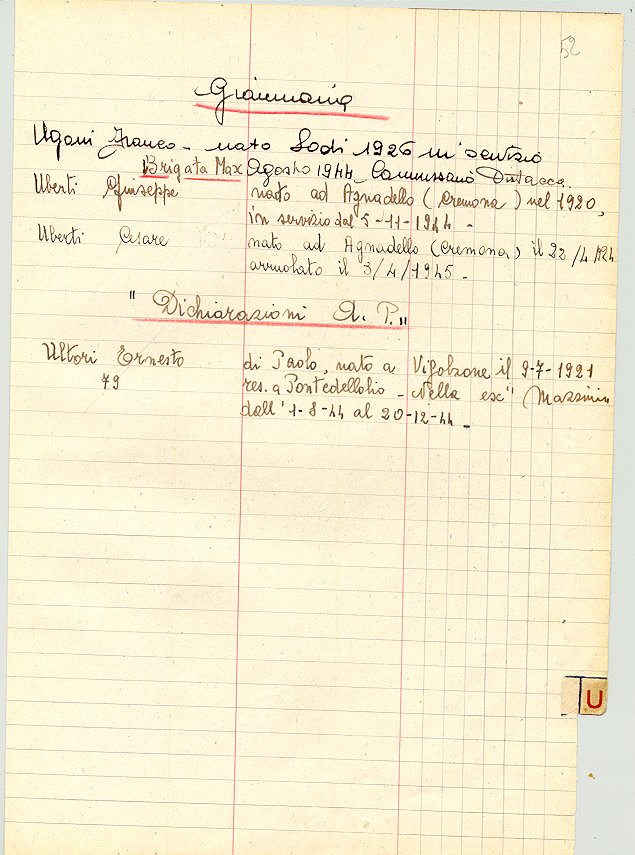 52
Giammaria
Ugoni Franco - nato Lodi 1926 in servizio
Brigata Max Agosto 1944 Commissario Distacca.
Uberti Giuseppe nato ad Agnadello (Cremona) nel 1920,
in servizio dal 5-11-1944 -
Uberti Cesare nato ad Agnadello (Cremona) il 22/4/924
arruolato il 3/4/1945 -
"Dichiarazioni A. P."
Ultori Ernesto di Paolo, nato a Vigolzone il 9-7-1921
79 res. a Pontedellolio - Nella ex"
dall'1-8-44 al 20-12-44 -
U